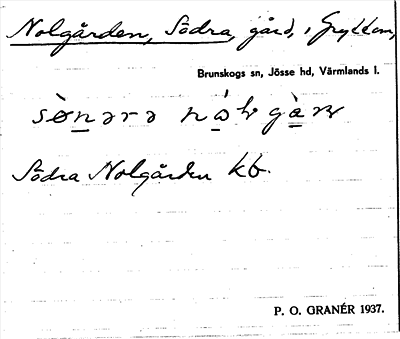 Nolgården, Södra, gård, i Grykken,
Brunskogs sn, Jösse hd, Värmlands l.
Södra Nolgården kb.
P. O. GRANÉR 1937.